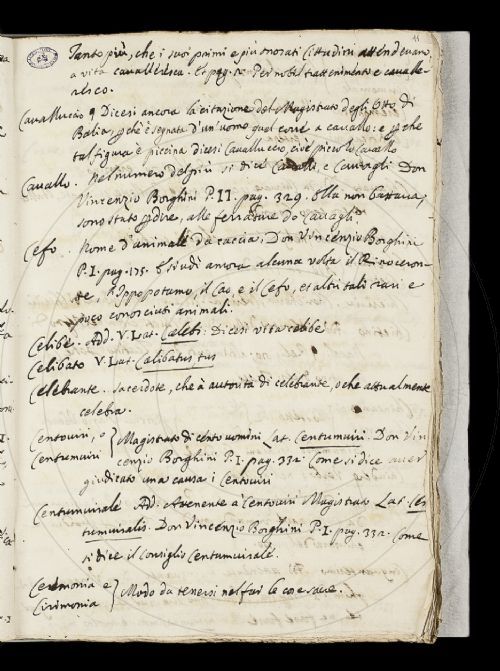 11
Tanto più, che i suoi primi e più onorati Cittadini attendevano
a vita cavalleresca. Et pag. Per nobil trattenimento e cavalle-
resco.
Cavalluccio Dicesi ancora la citazione del Magistrato degli Otto di
Balia, pchè è segnata d'un uomo quel corre a cavallo: e pche
tal figura è piccina dicesi Cavalluccio, cioè piccolo Cavallo
Cavallo. Nel numero del più si dice Cavalli, e Cavagli Don
Vincenzio Borghini P. II. pag. 329. Ella non bastava,
sono stato p dire, alle ferrature de Cavagli
Cefo. Nome d'animale da caccia; Don Vincenzio Borghini
P. I. pag. 175. E si udì ancora alcuna volta il Rinoceron-
te l'Ippopotamo, il Cao, e il Cefo, et altri tali rari e
poco conosciuti animali.
Celibe. Add. V. Lat. Cælebs: Dicesi vita celibe
Celibato V. Lat. Cælibatus tus
Celebrante. Sacerdote, che à autorità di celebrante, o che attualmente
celebra.
Centoviri, o
Centumviri } Magistrato di cento uomini Lat. Centumviri. Don Vin
cenzio Borghini P. I. pag. 332. Come si dice aver
giudicato una causa i Centoviri
Centumvirale Add. Attenente a Centoviri Magistrato Lat. Cen
tumviralis. Don Vincenzio Borghini P. I. pag. 332. Come
si dice il Consiglio Centumvirale.
Cerimonia e
Cirimonia } Modo da tenersi nel far le cose sacre.